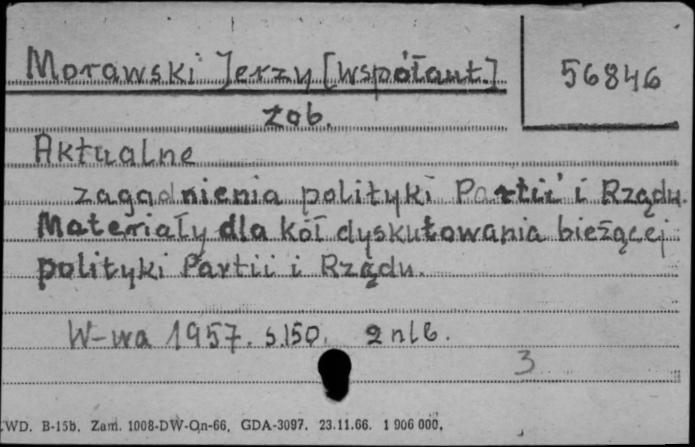 Morawski Jerzy [współaut.]
56846
zob.
Aktualne
zagadnienia polityki Partii i Rządu.
Materiały dla kół dyskutowania bieżącej
polityki Partii i Rządu.
W-wa 1957. s.150. 2 nlb.
3
WD. B-15b. Zam. 1008-DW-On-66. GDA-3097. 23.11.66. 1 906 000.